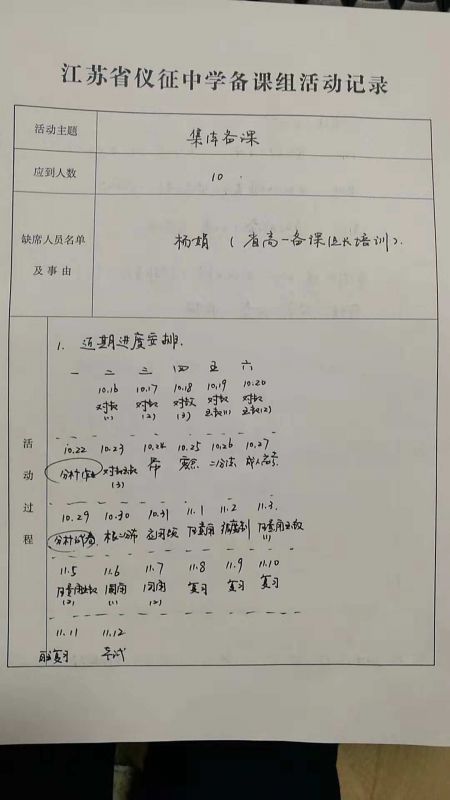 江苏省仪征中学备课组活动记录
活动主题 集体备课
应到人数 10
缺席人员名单及事由 杨娟（省高一备课组长培训）.
活动过程
1. 近期进度安排.
一 二 三 四 五 六
10.16 10.17 10.18 10.19 10.20
对数(1) 对数(2) 对数(3) 对数函数(1) 对数函数(2)
10.22 10.23 10.24 10.25 10.26 10.27
对数函数(3) 幂 二分法
10.29 10.30 10.31 11.1 11.2 11.3
分析试卷 根的分布 应用题 任意角 弧度制 任意角函数(1)
11.5 11.6 11.7 11.8 11.9 11.10
任意角函数(2) (1) (2) 复习 复习 复习
11.11 11.12
复习 考试